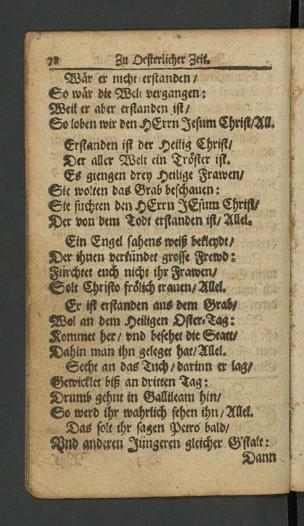 78 Zu Oesterlicher Zeit.
Wär er nicht erstanden/
So wär die Welt vergangen:
Weil er aber erstanden ist/
So loben wir den HErrn Jesum Christ/ All.
Erstanden ist der Heilig Christ/
Der aller Welt ein Tröster ist.
Es giengen drey Heilige Frawen/
Sie wolten das Grab beschauen:
Sie suchten den HErrn JEsum Christ/
Der von dem Todt erstanden ist/ Allel.
Ein Engel sahens weiß bekleydt/
Der ihnen verkündet grosse Frewd:
Fürchtet euch nicht ihr Frawen/
Solt Christo frölich trauen/ Allel.
Er ist erstanden aus dem Grab/
Wol an dem Heiligen Oster-Tag:
Kommet her/ vnd besehet die Statt/
Dahin man ihn geleget hat/ Allel.
Secht an das Tuch/ darinn er lag/
Gewicklet biß an dritten Tag:
Drumb gehnt in Gallileam hin/
So werd ihr wahrlich sehen ihn/ Allel.
Das solt ihr sagen Petro bald/
Vnd anderen Jüngeren gleicher G'stalt:
Dann